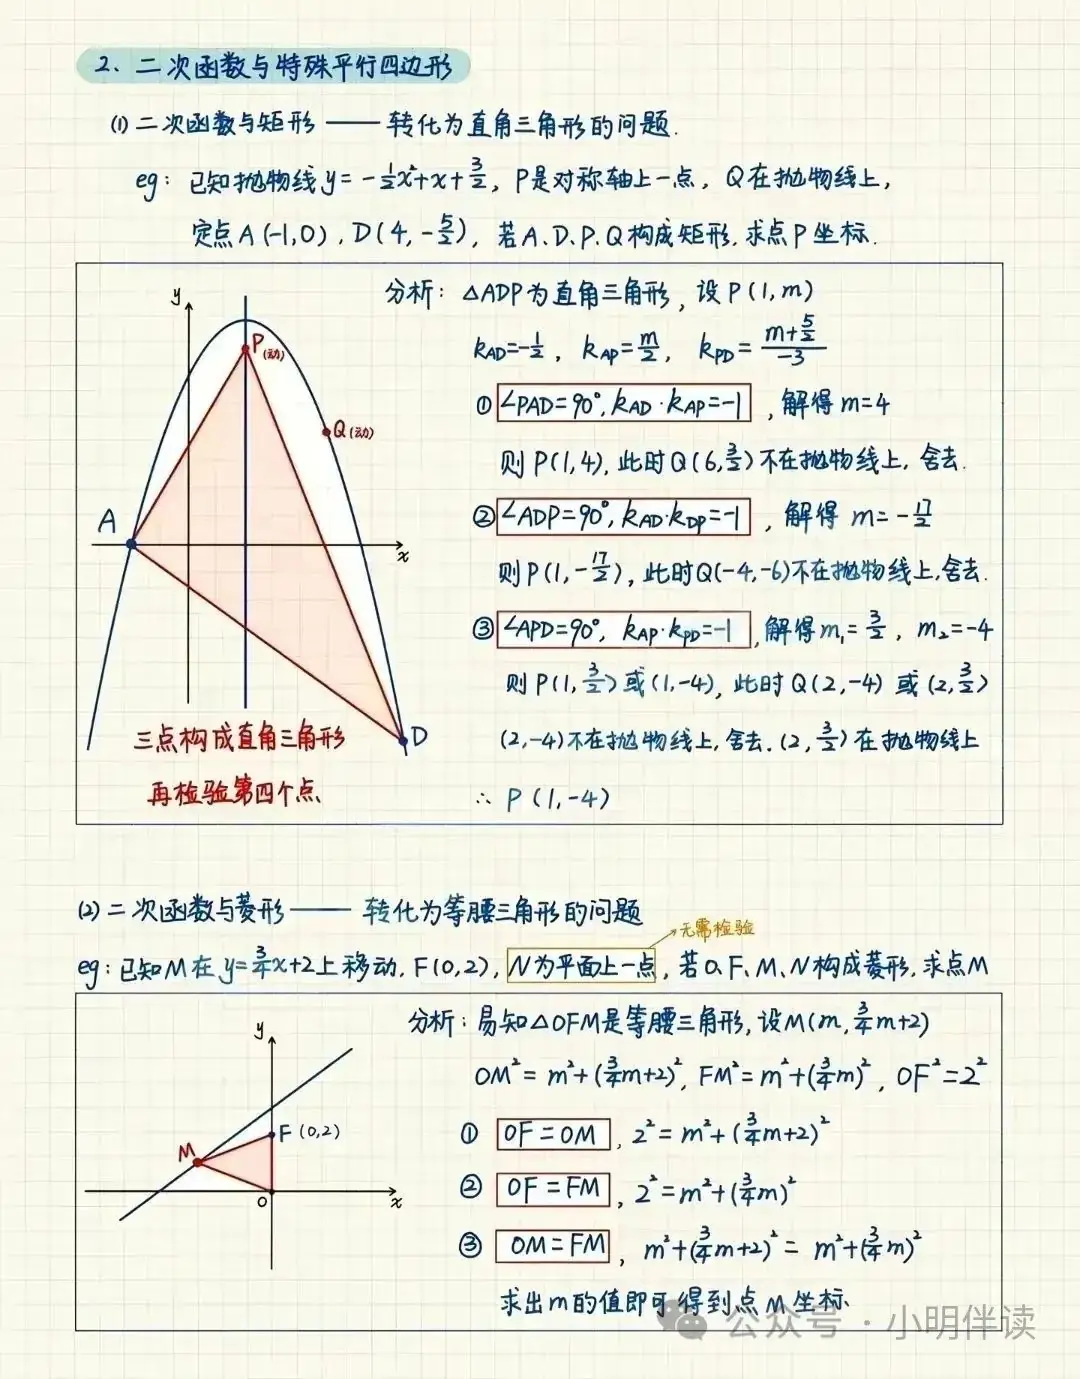 2、二次函数与特殊平行四边形
(1) 二次函数与矩形 —— 转化为直角三角形的问题.
eg：已知抛物线 y = -1/2x²+x+3/2，P是对称轴上一点，Q在抛物线上，
定点A(-1,0)，D(4, -5/2)，若A、D、P、Q构成矩形，求点P坐标.
分析：△ADP为直角三角形，设P(1,m)
y
k_AD=-1/2，k_AP=m/2，k_PD=(m+5/2)/-3
P(动)
① ∠PAD=90°, k_AD·k_AP=-1，解得m=4
Q(动)
则P(1,4)，此时Q(6,3/2)不在抛物线上，舍去.
A
② ∠ADP=90°, k_AD·k_DP=-1，解得 m=-17/2
x
则P(1,-17/2)，此时Q(-4,-6)不在抛物线上，舍去.
③ ∠APD=90°, k_AP·k_PD=-1，解得m₁=3/2，m₂=-4
则P(1,3/2)或(1,-4)，此时Q(2,-4)或(2,3/2)
D
三点构成直角三角形
(2,-4)不在抛物线上，舍去.(2,3/2)在抛物线上
再检验第四个点
∴ P(1,-4)
(2) 二次函数与菱形 —— 转化为等腰三角形的问题
无需检验
eg：已知M在y=3/4x+2上移动，F(0,2)，N为平面上一点，若O、F、M、N构成菱形，求点M
分析：易知△OFM是等腰三角形，设M(m,3/4m+2)
y
OM²=m²+(3/4m+2)²，FM²=m²+(3/4m)²，OF²=2²
F(0,2)
① OF=OM，2²=m²+(3/4m+2)²
M
② OF=FM，2²=m²+(3/4m)²
O
x
③ OM=FM，m²+(3/4m+2)²=m²+(3/4m)²
求出m的值即可得到点M坐标.
公众号·小明伴读